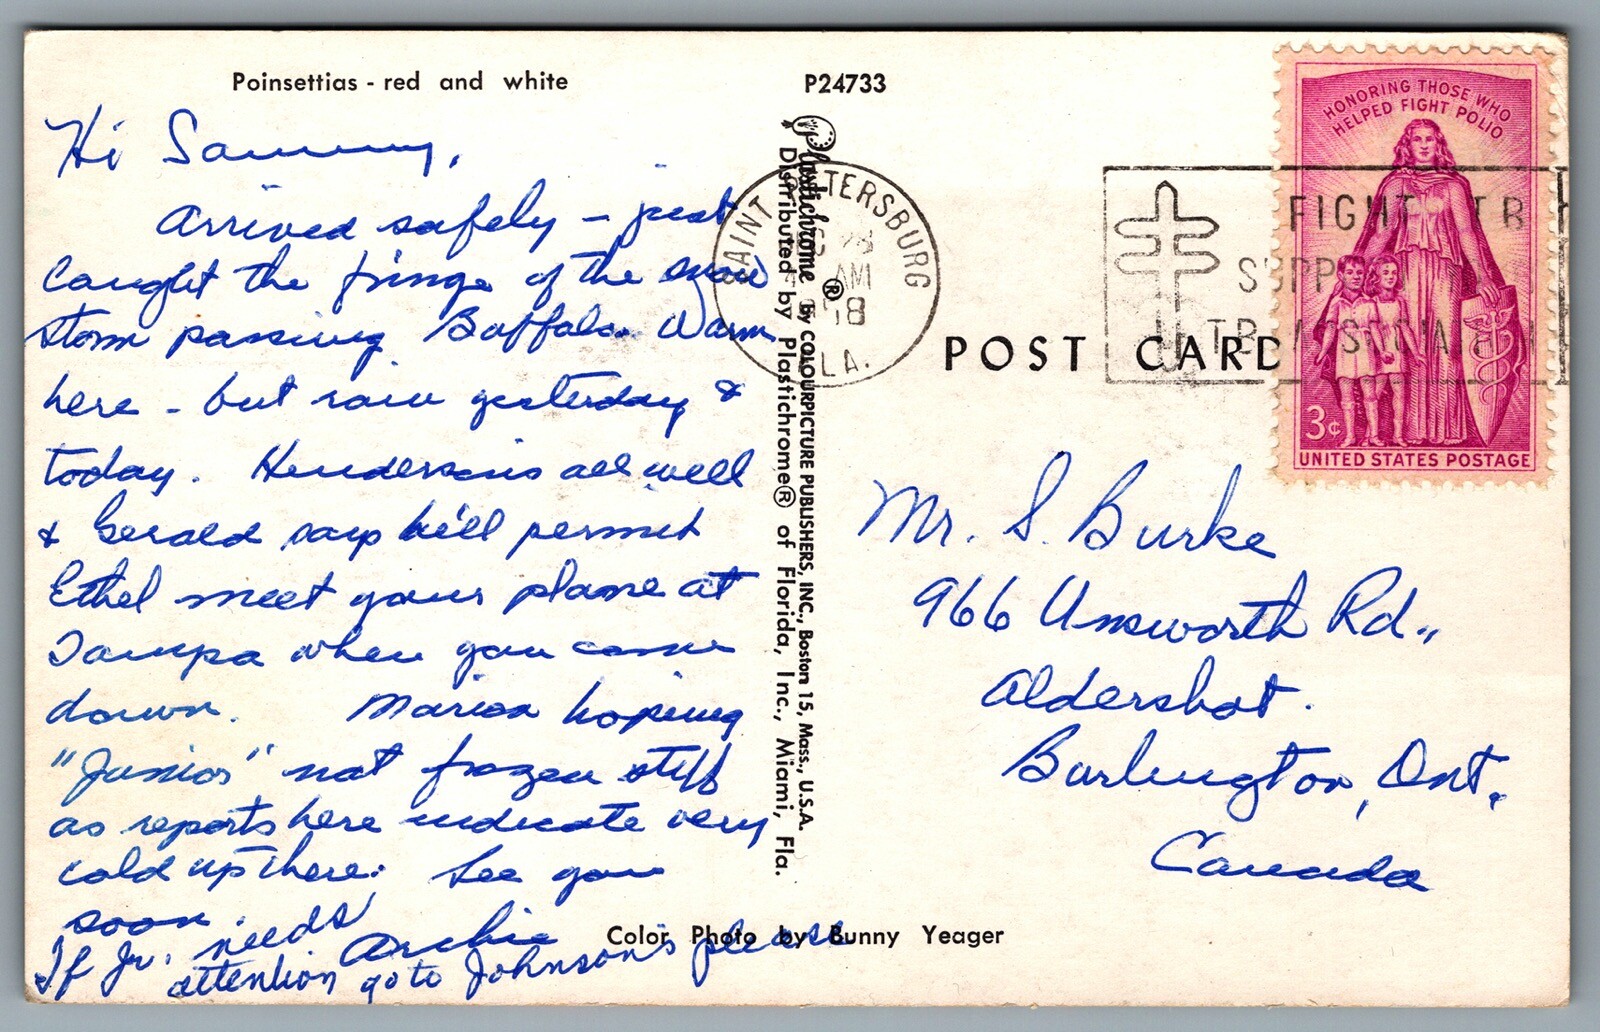 Poinsettias - red and white
P24733
Hi Sammy,
Arrived safely – just
caught the fringe of the snow
storm passing Buffalo. Warm
here - but rain yesterday &
today. Hendersons all well
& Gerald says he'll permit
Ethel meet your plane at
Tampa when you come
down. Marion hoping
"Junior" not frozen stiff
as reports here indicate very
cold up there. See you
soon.
Archie
If Jr. needs
attention go to Johnson's please
Color Photo by Bunny Yeager
Plastichrome ® by COLOURPICTURE PUBLISHERS, INC., Boston 15, Mass., U.S.A.
Distributed by Plastichrome® of Florida, Inc., Miami, Fla.
SAINT PETERSBURG
AM
FLA.
FIGHT TB
SUPPORT
TB ASSOCIATION
POST CARD
HONORING THOSE WHO
HELPED FIGHT POLIO
3¢
UNITED STATES POSTAGE
Mr. S. Burke
966 Unsworth Rd.,
Aldershot.
Burlington, Ont.
Canada